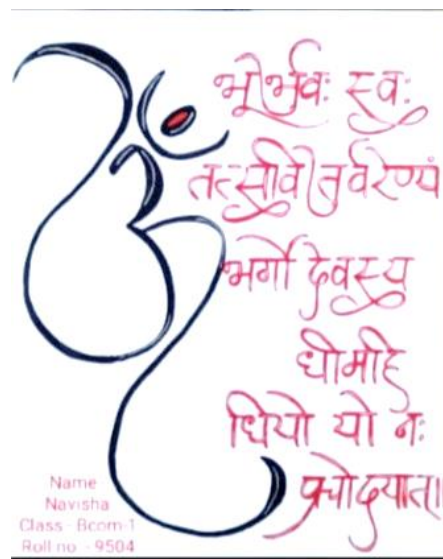 ॐ
भोर्भुवः स्वः
तत्सवितुर्वरेण्यं
भर्गो देवस्य
धीमहि
धियो यो नः
प्रचोदयात।
Name
Navisha
Class - Bcom-1
Roll no - 9504